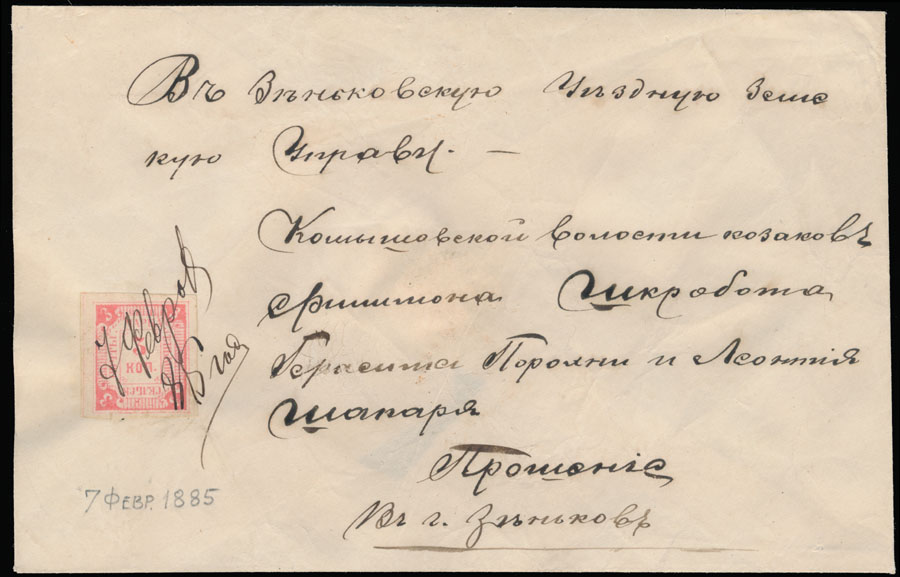 Въ Зѣньковскую УѣзднуюЗемс
кую Управу. —
Комышовской волости козаковъ
Филимона Шкробота,
Герасима Порохни и Леонтія
Шапаря
Прошеніе
Въ г. Зѣньковъ
7 Феврал
85 года
КОП.
7 ФЕВР. 1885